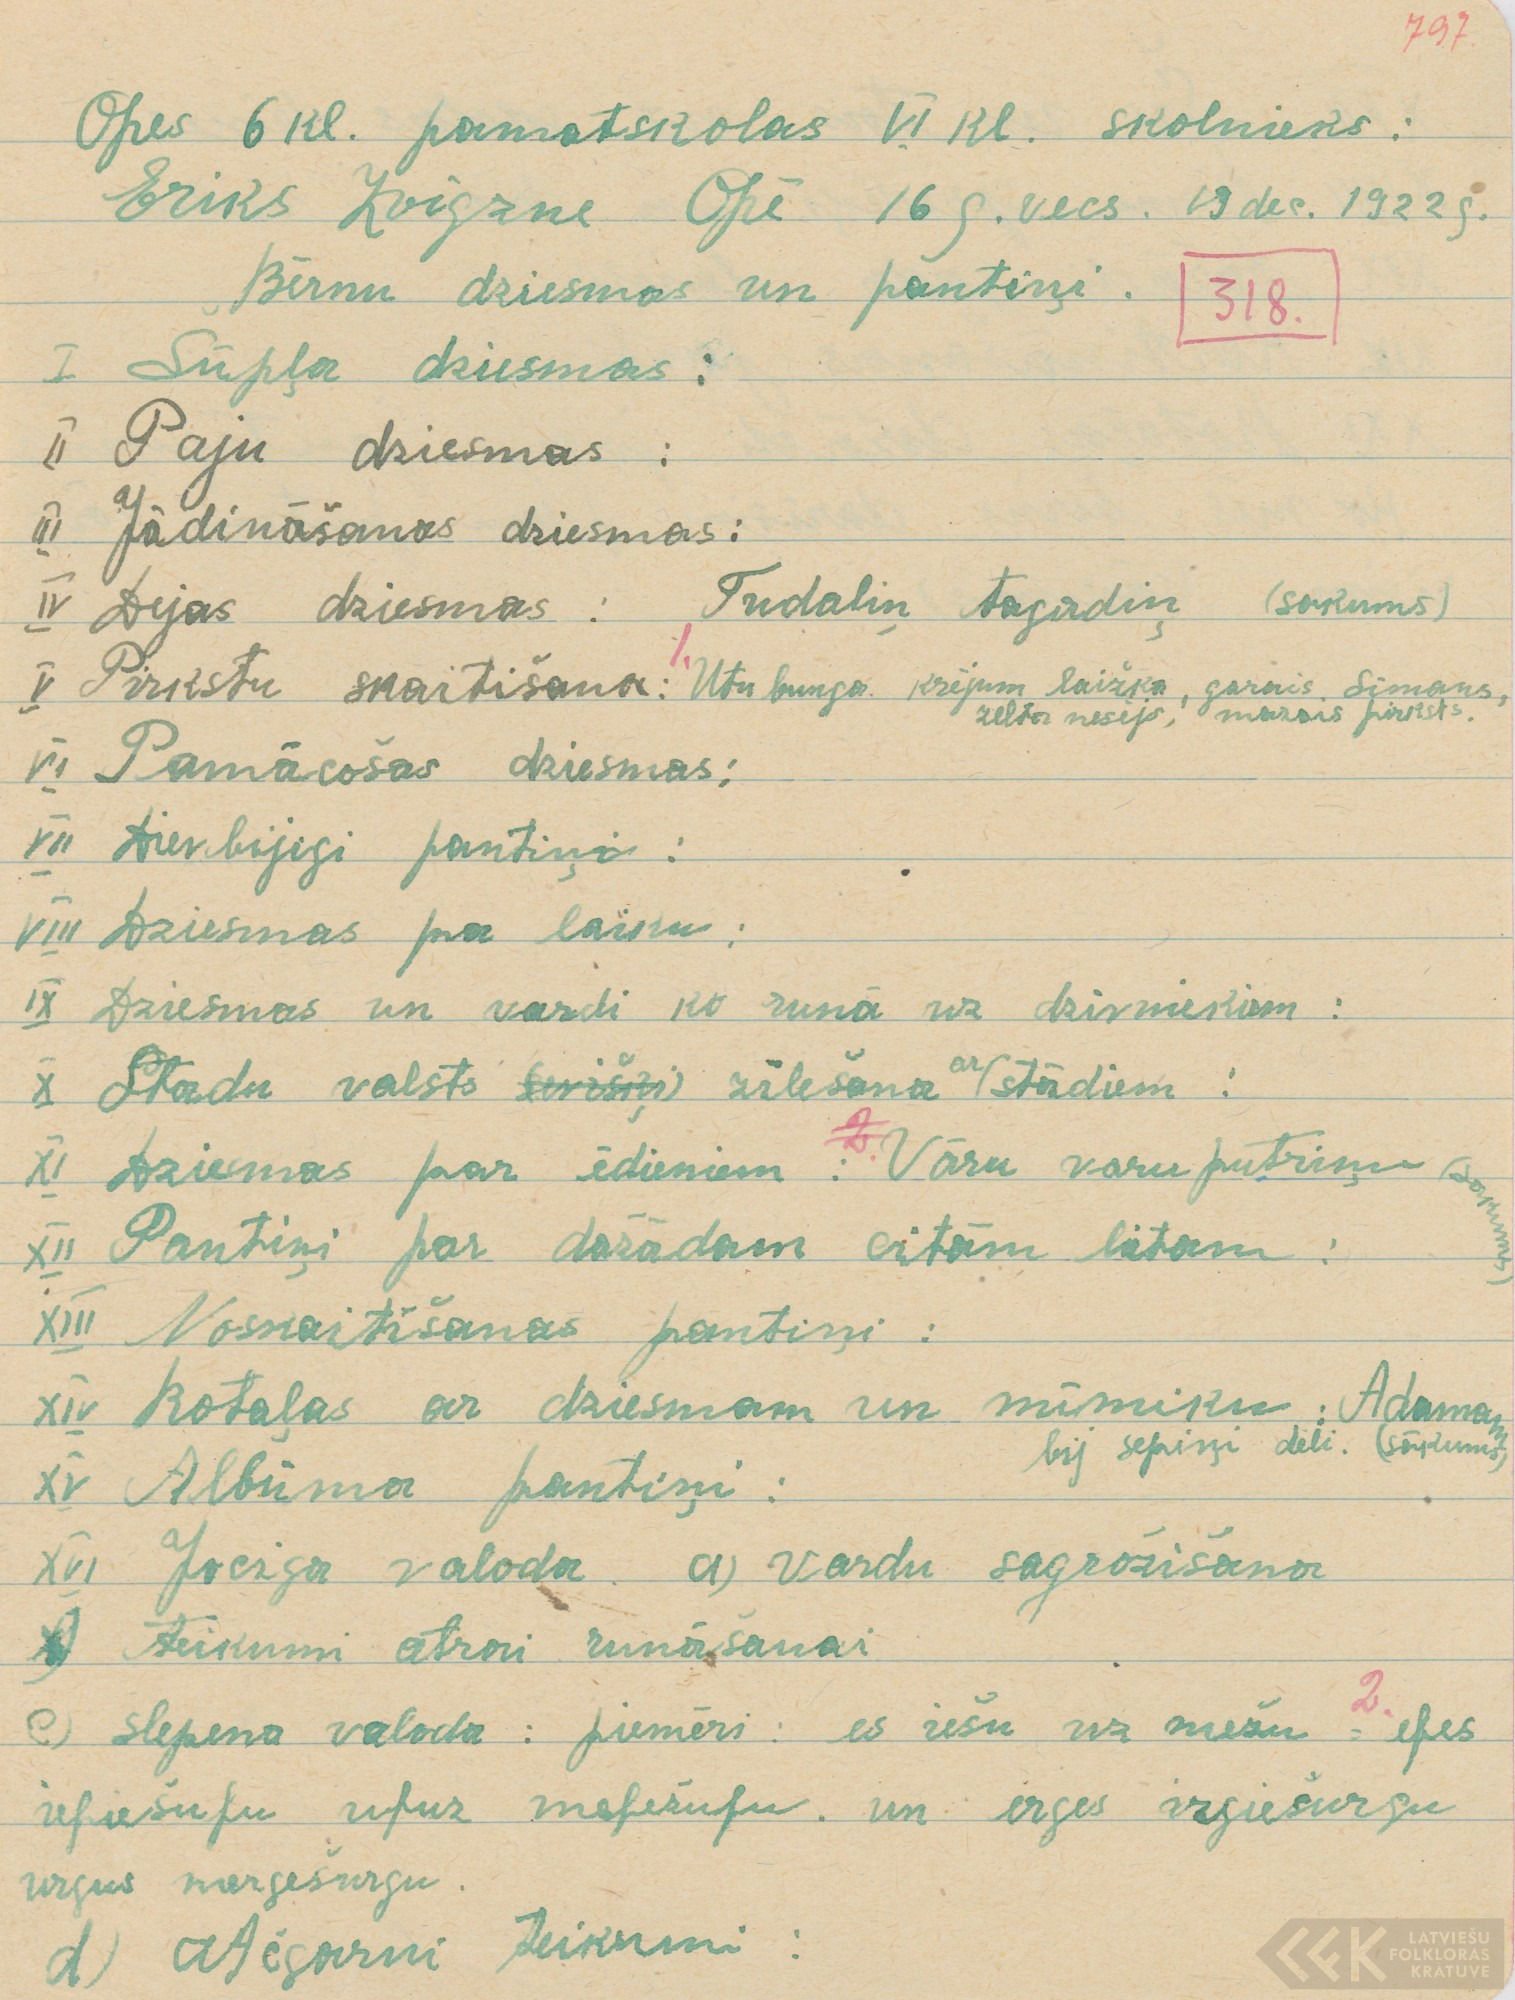 797.
Opes 6 kl. pamatskolas VI kl. skolnieks:
Eriks Zvigzne Opē 16 g. vecs. 19 dec. 1922 g.
Bērnu dziesmas un pantiņi. 318.
I Šūpļa dziesmas:
II Paju dziesmas:
III Jādināšanas dziesmas:
IV Dejas dziesmas: Tudaliņ tagadiņ (sakums)
V Pirkstu skaitišana: 1. Utu bunga krējum laižka, garais Sīmans,
zelta nesējs, mazais pirksts.
VI Pamācošas dziesmas:
VII Dievbijigi pantiņi:
VIII Dziesmas pa laiku:
IX Dziesmas un vardi ko runā uz dzivniekiem:
X Stadu valsts zīlešana ar (stādiem:
XI Dziesmas par ēdieniem: 2. Vāru varu putriņu (sakums)
XII Pantiņi par dažādam citām lietam:
XIII Noskaitīšanas pantiņi:
XIV Rotaļas ar dziesmam un mīmiku: Adamam
bij sepiņi dēli. (sākums)
XV Albūma pantiņi:
XVI Jociga valoda. a) Vardu sagrožišana
b) teikumi atrai runāšanai
c) slepena valoda: piemēri: es iešu uz mežu = 2. epes
iepiešupu upuz mepežupu. un erges irgiešurgu
urguz mergešurgu.
d) atčgarni teikumi:
LATVIEŠU
FOLKLORAS
KRATUVE